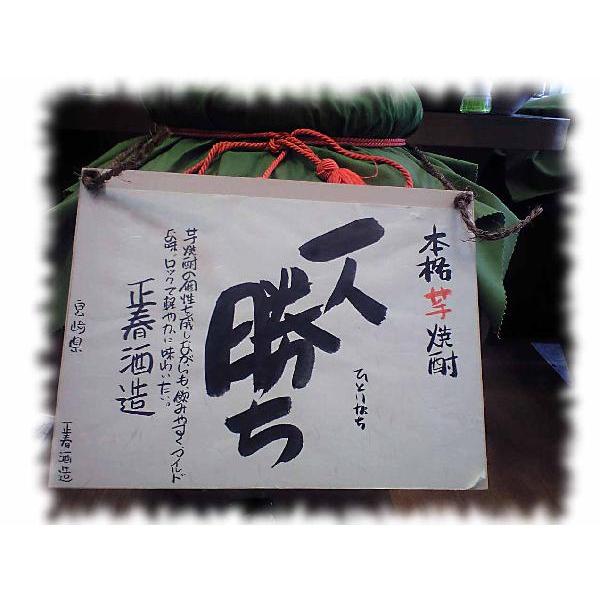 本格芋焼酎
一人勝ち
ひとりがち
芋焼酎の個性を残しながらも、飲みやすくマイルド
な味。ロックで軽やかに味わいたい。
正春酒造
宮崎県
正春酒造